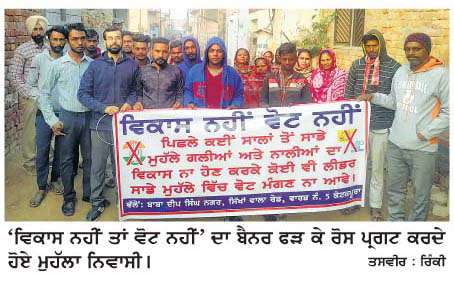 ਵਿਕਾਸ ਨਹੀਂ ਵੋਟ ਨਹੀਂ
ਪਿਛਲੇ ਕਈ ਸਾਲਾਂ ਤੋਂ ਸਾਡੇ
ਮੁਹੱਲੇ ਗਲੀਆਂ ਅਤੇ ਨਾਲੀਆਂ ਦਾ
ਵਿਕਾਸ ਨਾ ਹੋਣ ਕਰਕੇ ਕੋਈ ਵੀ ਲੀਡਰ
ਸਾਡੇ ਮੁਹੱਲੇ ਵਿੱਚ ਵੋਟ ਮੰਗਣ ਨਾ ਆਵੇ।
ਵੱਲੋਂ: ਬਾਬਾ ਦੀਪ ਸਿੰਘ ਨਗਰ, ਸਿੱਖਾਂ ਵਾਲਾ ਰੋਡ, ਵਾਰਡ ਨੰ. 5 ਕੋਟਕਪੂਰਾ
'ਵਿਕਾਸ ਨਹੀਂ ਤਾਂ ਵੋਟ ਨਹੀਂ' ਦਾ ਬੈਨਰ ਫੜ ਕੇ ਰੋਸ ਪ੍ਰਗਟ ਕਰਦੇ
ਹੋਏ ਮੁਹੱਲਾ ਨਿਵਾਸੀ।
ਤਸਵੀਰ : ਰਿੰਕੀ